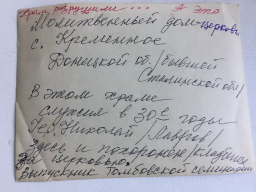 Храм разрушили... А это
Молитвенный дом-церковь
с. Кременное
Донецкой обл. /бывшей
Сталинской обл/
В этом храме
служил в 30е годы
Иер. Николай /Лавров/
Здесь и похоронен /кладбище
за церковью.
Выпускник Тамбовской семинарии